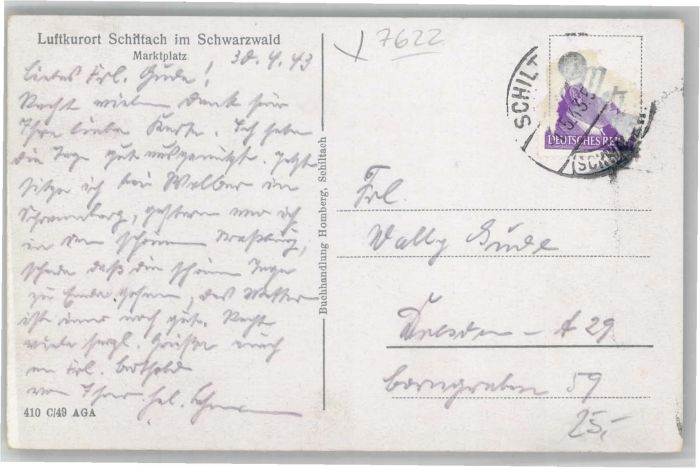 Luftkurort Schiltach im Schwarzwald
Marktplatz
30.4.43
Liebes Frl. Gude!
Recht vielen Dank für
Ihre liebe Karte. Ich habe
die Tage gut ausgenützt. Jetzt
sitze ich bei Walber in
Schramberg, gestern war ich
in dem schönen Straßburg,
schade daß die schönen Tage
zu Ende gehen, das Wetter
ist immer noch gut. Recht
viele herzl. Grüße auch
an Frl. Berthold
von Ihrer Hel.
410 C/49 AGA
Buchhandlung Homberg, Schiltach
7622
SCHILT
DEUTSCHES REI
(SCHW
Frl.
Wally Gude
Dresden - A 29
Borngraben 59
25,-